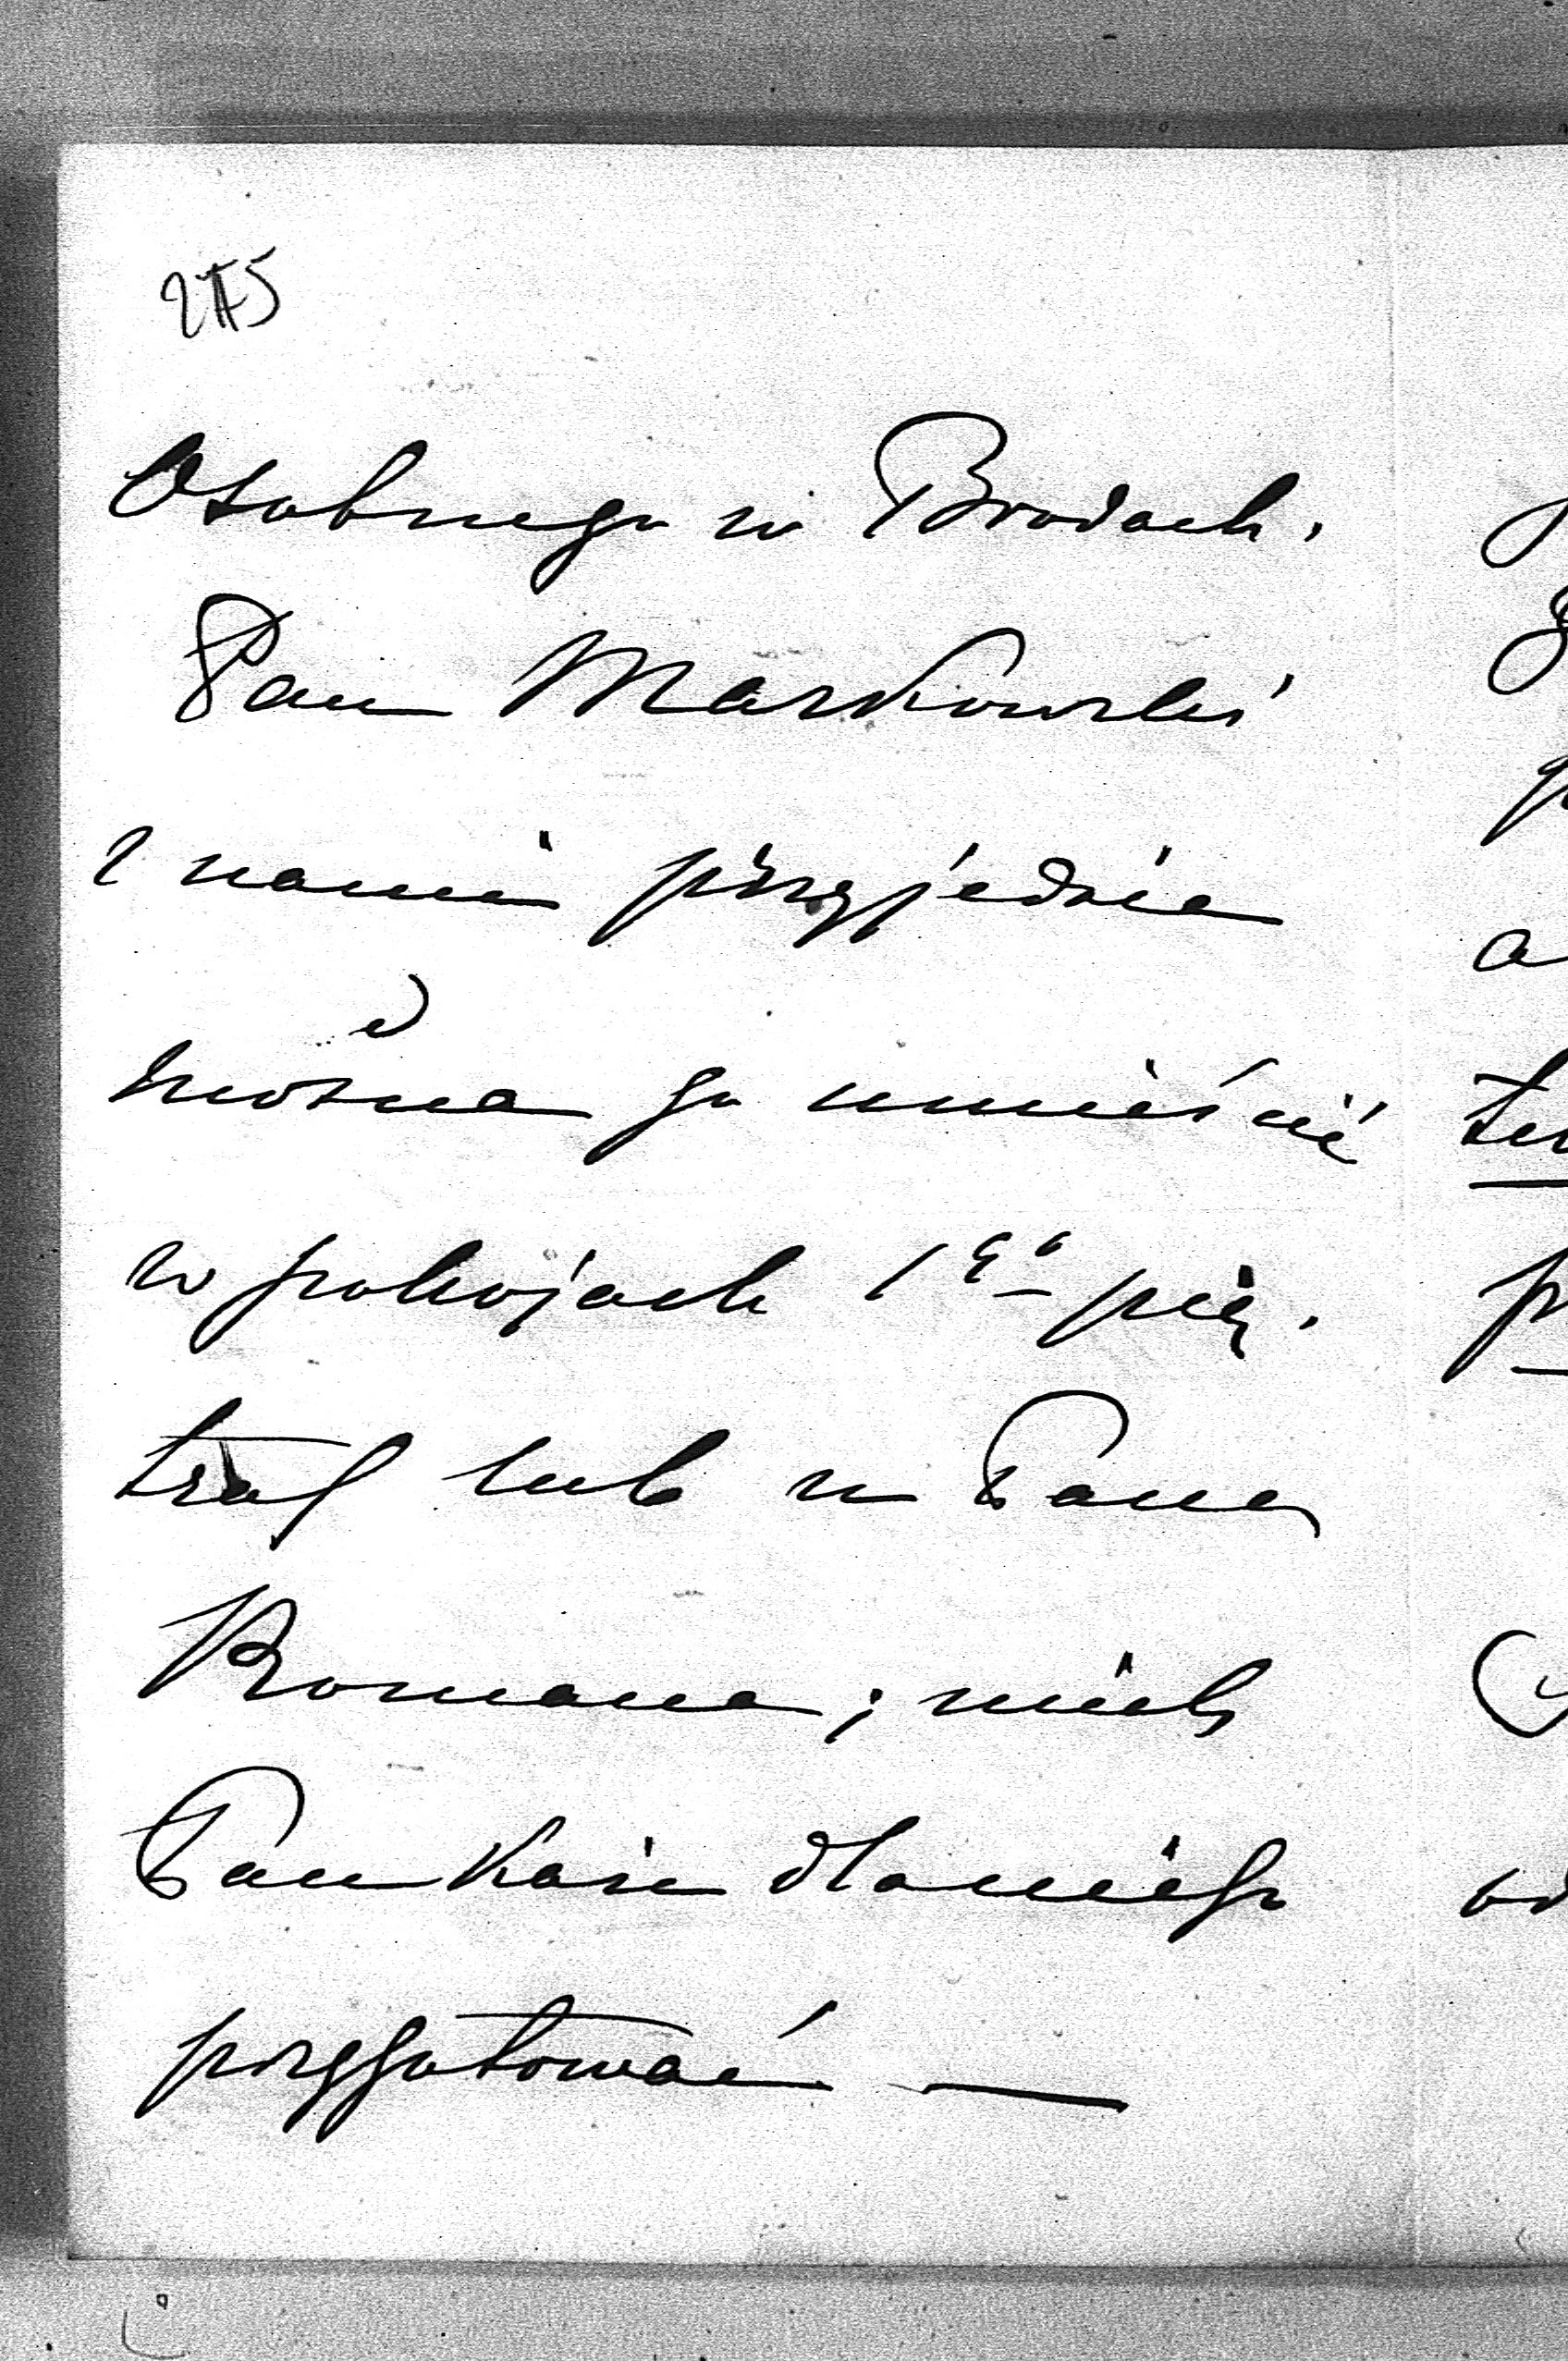 275
Osobnego w Brodach.
Pan Markowski
z nami przyjedzie
można go umieścić
w pokojach 1go pię.
trze lub u Pana
Romana; niech
Pan każe dla niego
przygotować —